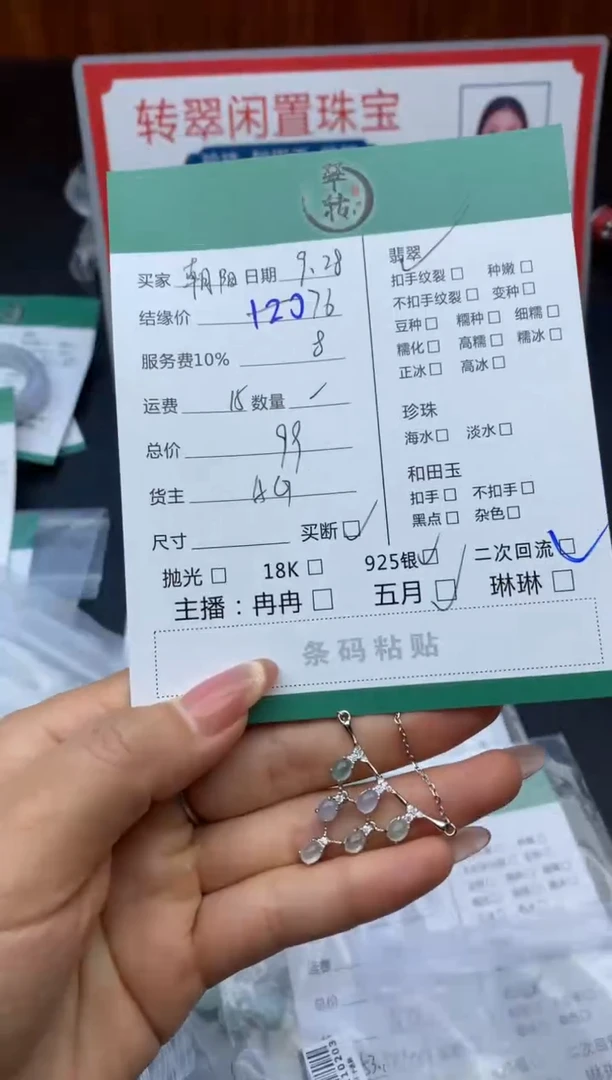 转翠闲置珠宝
翠
转
买家 朝阳 日期 9.28
结缘价 120 76
服务费10% 8
运费 15 数量
总价 99
货主 AG
尺寸 买断
翡翠
扣手纹裂 种嫩
不扣手纹裂 变种
豆种 糯种 细糯
糯化 高糯 糯冰
正冰 高冰
珍珠
海水 淡水
和田玉
扣手 不扣手
黑点 杂色
抛光 18K 925银 二次回流
主播：冉冉 五月 琳琳
条码粘贴
运费
总价